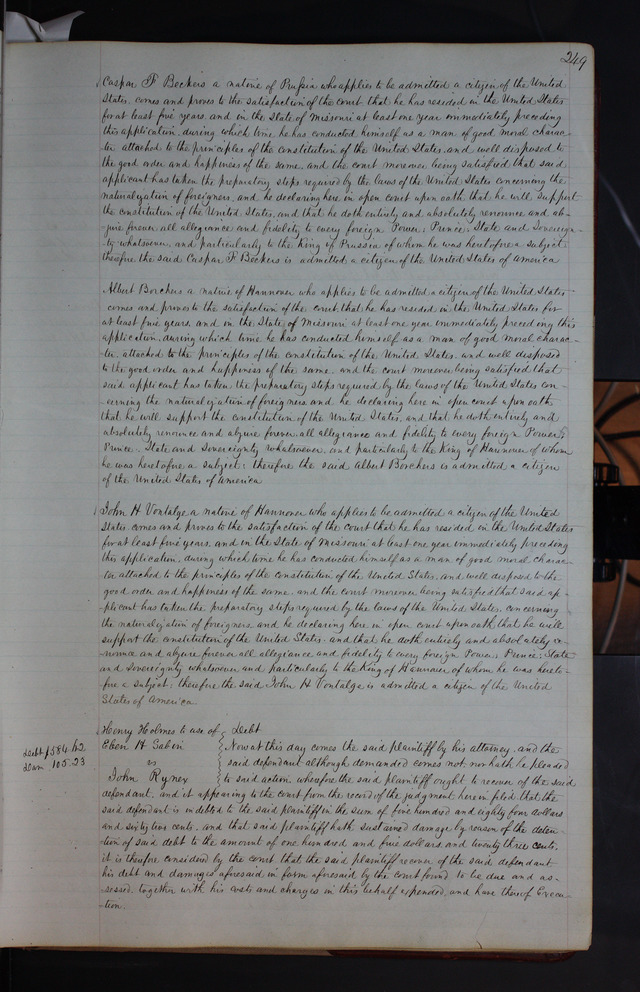 249
Caspar F Beckers a native of Prussia who applies to be admitted a citizen of the United
States, comes and proves to the satisfaction of the court that he has resided in the United States
for at least five years, and in the State of Missouri at least one year immediately preceding
this application, during which time he has conducted himself as a man of good moral charac-
ter attached to the principles of the constitution of the United States, and well disposed to
the good order and happiness of the same, and the court moreover being satisfied that said
applicant has taken the preparatory steps required by the laws of the United States concerning the
naturalization of foreigners, and he declaring here in open court upon oath, that he will support
the constitution of the United States, and that he doth entirely and absolutely renounce and ab-
jure forever all allegiance and fidelity to every foreign Power, Prince, State and Sovereign-
ty whatsoever, and particularly to the King of Prussia of whom he was heretofore a subject
therefore the said Caspar F Beckers is admitted a citizen of the United States of America
Albert Borchers a native of Hannover who applies to be admitted a citizen of the United States
comes and proves to the satisfaction of the court that he has resided in the United States for
at least five years, and in the State of Missouri at least one year immediately preceding this
application, during which time he has conducted himself as a man of good moral charac-
ter, attached to the principles of the constitution of the United States, and well disposed
to the good order and happiness of the same, and the court moreover being satisfied that
said applicant has taken the preparatory steps required by the laws of the United States con-
cerning the naturalization of foreigners and he declaring here in open court upon oath
that he will support the constitution of the United States, and that he doth entirely and
absolutely renounce and abjure forever all allegiance and fidelity to every foreign Power,
Prince, State and Sovereignty whatsoever, and particularly to the King of Hannover of whom
he was heretofore a subject: therefore the said Albert Borchers is admitted a citizen
of the United States of America
John H Vontalge a native of Hannover who applies to be admitted a citizen of the United
States comes and proves to the satisfaction of the court that he has resided in the United States
for at least five years, and in the State of Missouri at least one year immediately preceding
this application, during which time he has conducted himself as a man of good moral charac-
ter attached to the principles of the constitution of the United States, and well disposed to the
good order and happiness of the same, and the court moreover being satisfied that said ap-
plicant has taken the preparatory steps required by the laws of the United States, concerning
the naturalization of foreigners, and he declaring here in open court upon oath, that he will
support the constitution of the United States, and that he doth entirely and absolutely re-
nounce and abjure forever all allegiance and fidelity to every foreign Power, Prince, State
and Sovereignty whatsoever and particularly to the King of Hannover of whom he was hereto-
fore a subject: therefore the said John H Vontalge is admitted a citizen of the United
States of America
Henry Holmes to use of Debt
Eben H Gabin Now at this day comes the said plaintiff by his attorney, and the
Debt $584.62 vs said defendant although demanded comes not, nor hath he pleaded
Dam 105.23 John Ryner to said action, wherefore the said plaintiff ought to recover of the said
defendant, and it appearing to the court from the record of the judgment herein filed that the
said defendant is indebted to the said plaintiff in the sum of five hundred and eighty four dollars
and sixty two cents, and that said plaintiff hath sustained damage by reason of the deten-
tion of said debt to the amount of one hundred and five dollars and twenty three cents.
it is therefore considered by the court that the said plaintiff recover of the said defendant
his debt and damages aforesaid in form aforesaid by the court found to be due and as-
sessed, together with his costs and charges in this behalf expended, and have thereof Execu-
tion.